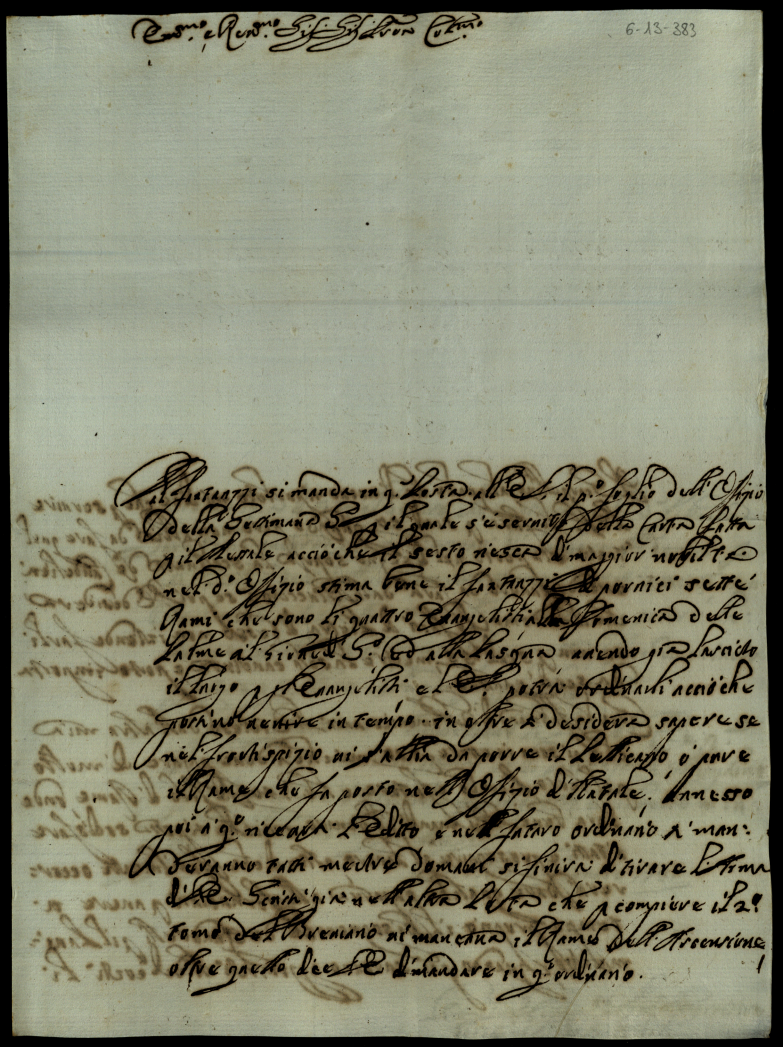 Em.mo e Rev.mo Sig. Sig. Pron Col.mo
6-13-383
si manda in q.a Posta all' il p.o foglio dell' Offizio
della Settimana S. il quale s'è servito della Carta fatta
p il Messale acciò che il sesto riesca di maggior nobiltà
nel d.o Offizio stima bene il di porvici sette
Rami che sono li quattro Evangelisti alla Domenica delle
Palme al Giovedì S.o ed alla Pasqua avendo già lasciato
il luogo p gl'Evangelisti e potrà ordinarli acciò che
possino venire in tempo. in oltre si desidera sapere se
nel frontispizio vi s'abbia da porre il Pellicano o pure
il Rame che fu posto nell' Offizio di Natale. Annesso
poi a q.o riceverà l'Edito e nell futuro ordinario si man:
deranno tutti mentre domani si finirà di tirare l'ultima
già nell'altra che p compiere il 2.o
tomo del Breviario vi mancava il Rame dell'Ascensione
oltre quello di mandare in q.o ordinario.